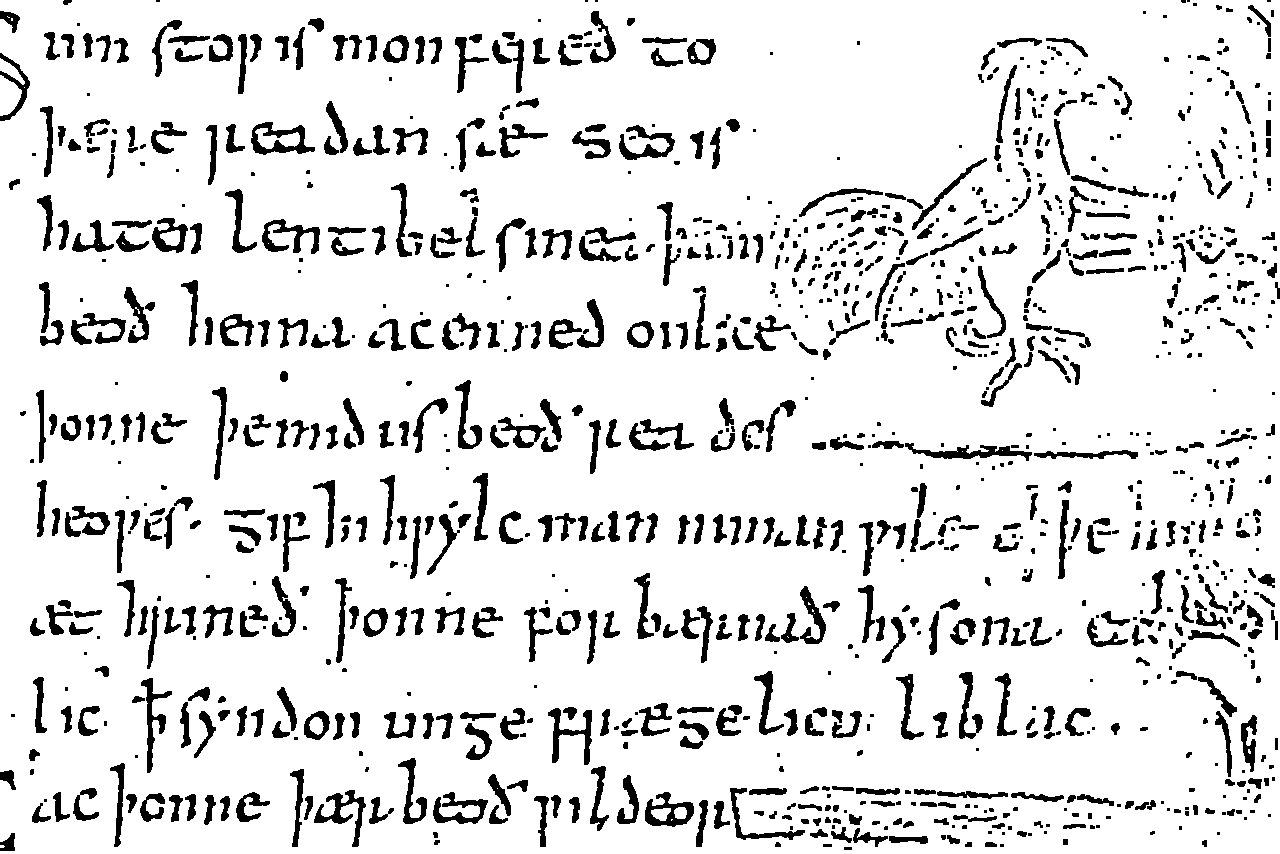 Sum stop is mon færeð to
þære readan sæ̅ Seo is
haten lentibelsinea þam
beoð henna acennede onlice
þonne þe mid us beoð reades
heopes gif hi hpylc man niman pile oþþe
æt hrineð þonne for bærnað hy sona eal
lic ꝥ syndon unge frægelicu liblac.
ac þonne þær beoð pildeor